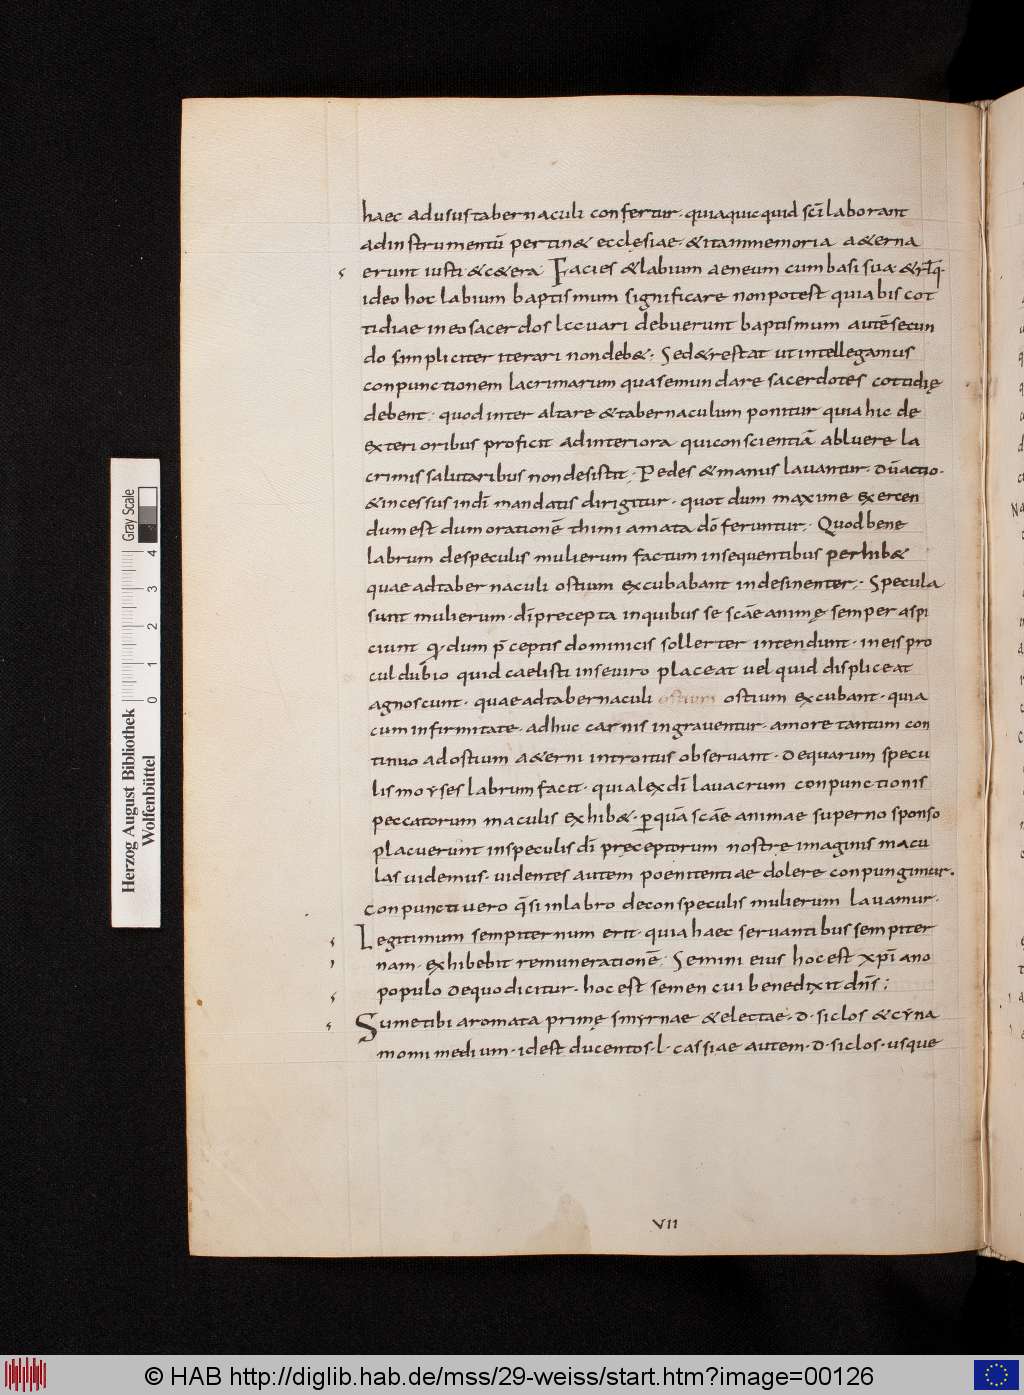 haec adusus tabernaculi confertur· quia quicquid sc̄i laborant
ad instrumentū pertin& ecclesiae· & itam memoria a&erna
erunt iusti & c&era Facies & labium aeneum cum basi sua & rl̄q·
ideo hoc labium baptismum significare non potest quia bis cot
tidiae in eo sacerdos lccuari debuerunt baptismum autē secun
do simpliciter iterari non deb&· Sed & restat ut intellegamus
conpunctionem lacrimarum qua se mundare sacerdotes cottidię
debent· quod inter altare & tabernaculum ponitur quia hic de
exterioribus proficit ad interiora qui conscientiā abluere la
crimis salutaribus non desistit· Pedes & manus lavantur· dū actio·
& incessus in dī mandatis dirigitur· quot dum maxime exercen
dum est dum orationē thimiamata dō feruntur· Quod bene
labrum de speculis mulierum factum insequentibus perhib&
quae ad tabernaculi ostium excubabant indesinenter· Specula
sunt mulierum· dī precepta in quibus se scāe animę semper aspi
ciunt q· dum p̄ceptis dominicis sollerter intendunt· in eis pro
cul dubio quid caelisti in se viro placeat vel quid displiceat
agnoscunt· quae ad tabernaculi ostium ostium excubant· quia
cum infirmitate· adhuc carnis ingraventur· amore tantum con
tinuo ad ostium a&erni introitus observant· De quarum specu
lis moyses labrum facit· quia lex dī lavacrum conpunctionis
peccatorum maculis exhib&· p quā scāe animae superno sponso
placuerunt in speculis dī pręceptorum nostre imaginis macu
las videmus· videntes autem poenitentiae dolere conpungimur.
Conpuncti vero q̄si in labro de conspeculis mulierum lavamur·
Legitimum sempiternum erit· quia haec servantibus sempiter
nam· exhibebit remunerationē· Semini eius hoc est xp̄i a no
populo De quo dicitur· hoc est semen cui benedixit dn̄s;
Sume tibi aromata primę smyrnae & electae· D· siclos & cyna
momi medium· id est ducentos· l· cassiae autem· D· siclos· usque
VII
Herzog August Bibliothek
Wolfenbüttel
0 1 2 3 4
Gray Scale
© HAB http://diglib.hab.de/mss/29-weiss/start.htm?image=00126